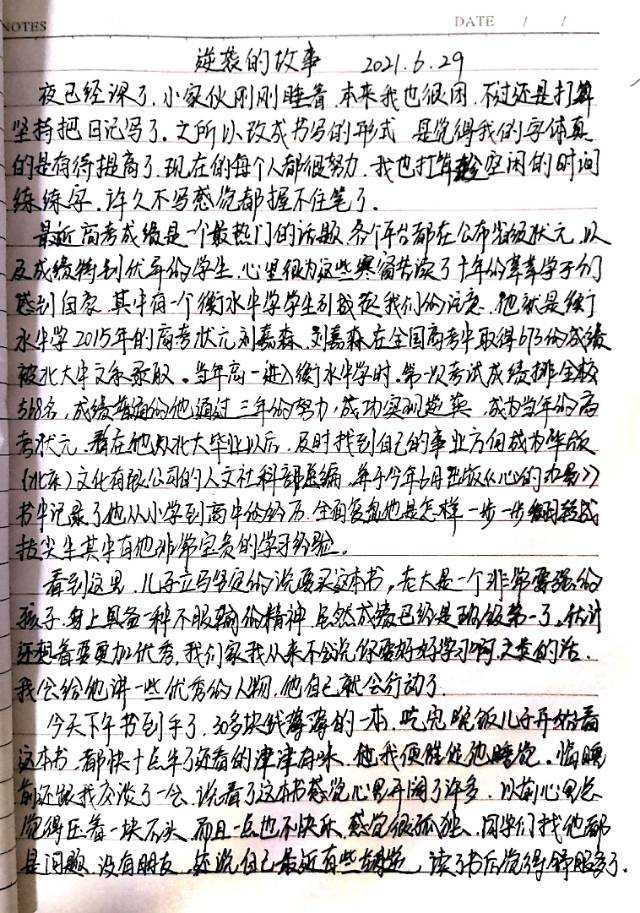 NOTES
DATE / /
逆袭的故事 2021.6.29
夜已经深了,小家伙刚刚睡着,本来我也很困,不过还是打算
坚持把日记写了.之所以改成书写的形式 是觉得我的字体真
的是有待提高了.现在的每个人都很努力.我也打算趁空闲的时间
练练字.许久不写感觉都握不住笔了.
最近高考成绩是一个最热门的话题,各个平台都在公布省级状元,以
及成绩特别优异的学生.心里很为这些寒窗苦读了十年的莘莘学子们
感到自豪.其中有一个衡水中学学生引起我们的注意.他就是衡
水中学2015年的高考状元刘嘉森.刘嘉森在全国高考中取得673的成绩
被北大中文系录取。当年高一进入衡水中学时.第一次考试成绩排全校
518名,成绩普通的他通过三年的努力,成功实现逆袭.成为当年的高
考状元.在他从北大毕业以后,及时找到自己的事业方向成为华版
(北京)文化有限公司的人文社科部主编.并于今年6月出版《心的力量》
书中记录了他从小学到高中的经历.全面复盘他是怎样一步一步翻转成
拔尖生其中有他非常宝贵的学习经验。
看到这里,儿子立马坚定的说要买这本书,老大是一个非常要强的
孩子.身上具备一种不服输的精神.虽然成绩已经是班级第一了,估计
还想着要更加优秀,我们家我从来不会说你要好好学习啊之类的话.
我会给他讲一些优秀的人物,他自己就会行动了.
今天下午书到手了,30多块钱薄薄的一本.吃完晚饭儿子开始看
这本书.都快十点半了还看的津津有味.我便催促他睡觉.临睡
前还跟我交谈了一会.说看了这本书感觉心里开阔了许多.以前心里总
觉得压着一块石头.而且一点也不快乐.感觉很孤独.同学们找他都
是问题.没有朋友.还说自己最近有些,读了书后觉得舒服多了.